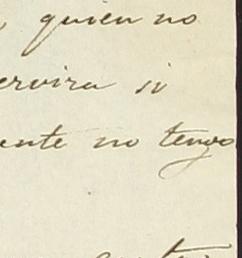 quien no
ervira si
ente no tengo